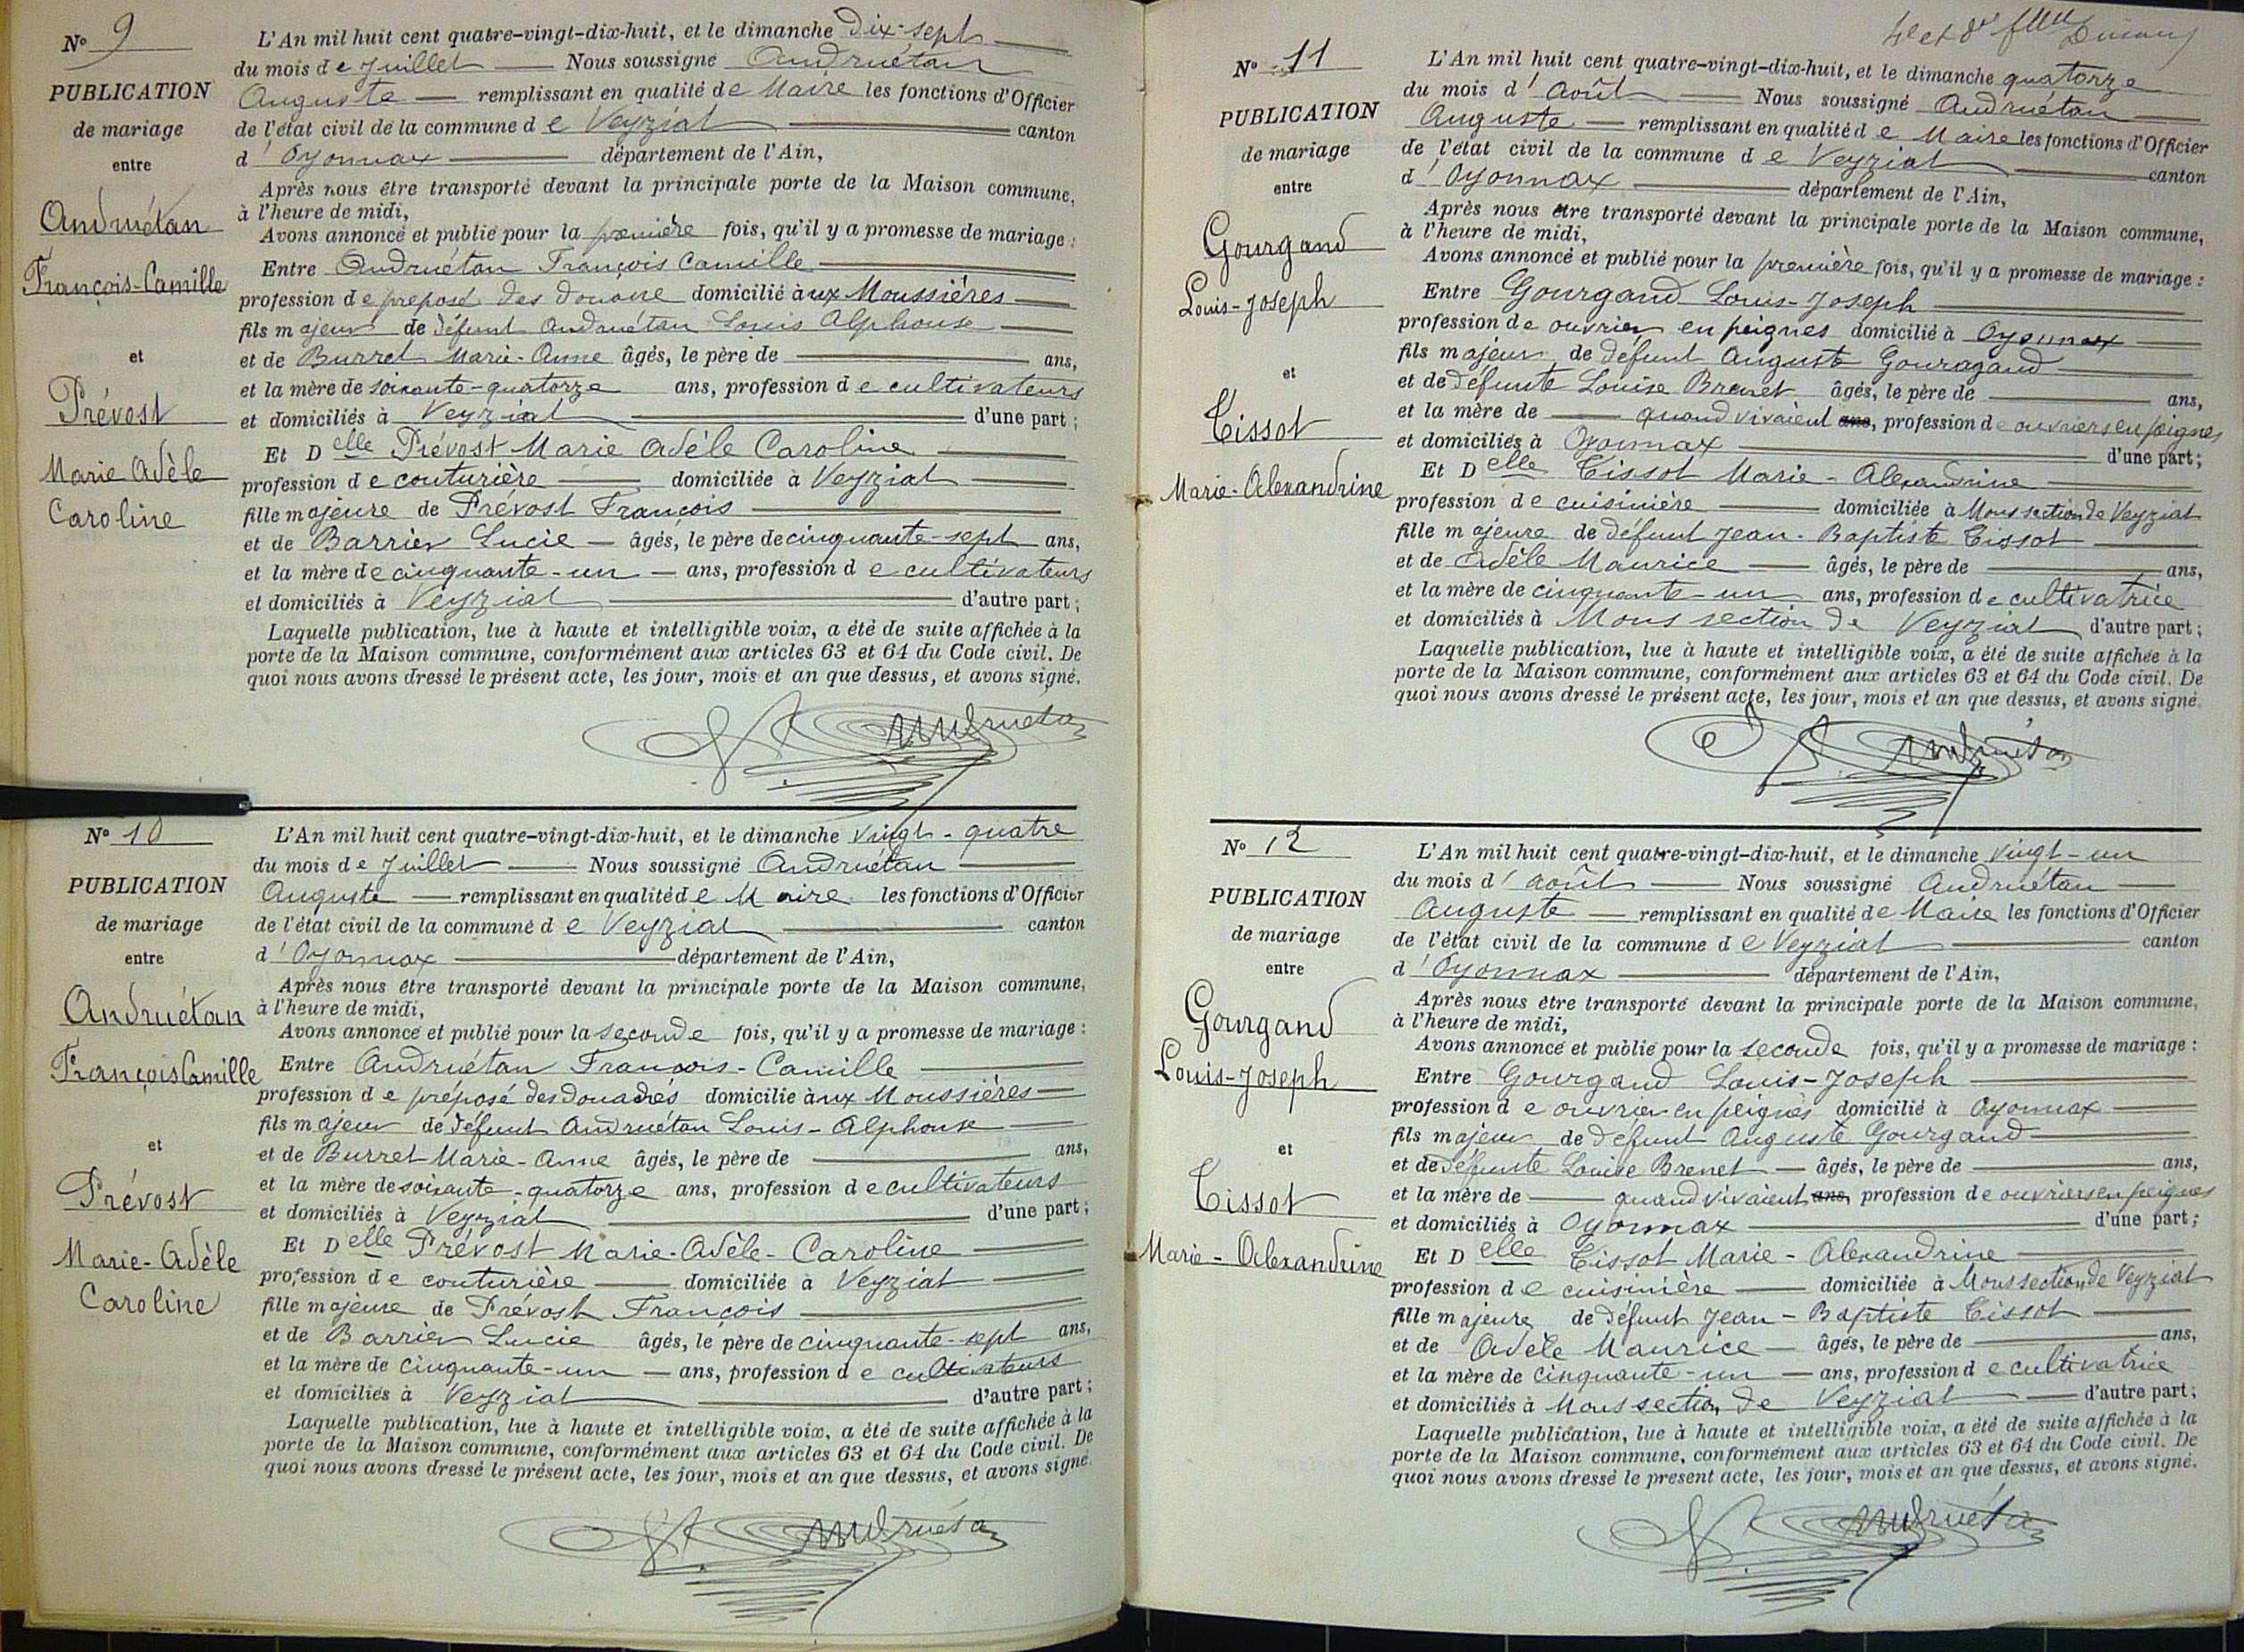 N° 9
PUBLICATION
de mariage
entre
Andruétan
François-Camille
et
Prévost
Marie Adèle
Caroline
L'An mil huit cent quatre-vingt-dix-huit, et le dimanche dix-sept
du mois de Juillet Nous soussigné Andruétan
Auguste remplissant en qualité de Maire les fonctions d'Officier
de l'état civil de la commune de Veyziat canton
d'Oyonnax département de l'Ain,
Après nous être transporté devant la principale porte de la Maison commune,
à l'heure de midi,
Avons annoncé et publié pour la première fois, qu'il y a promesse de mariage :
Entre Andruétan François Camille
profession de preposé des douane domicilié aux Moussières
fils majeur de défunt Andruétan Louis Alphonse
et de Burret Marie-Anne âgés, le père de ans,
et la mère de soixante-quatorze ans, profession de cultivateurs
et domiciliés à Veyziat d'une part ;
Et Delle Prévost Marie Adèle Caroline
profession de couturière domiciliée à Veyziat
fille majeure de Prévost François
et de Barrier Lucie âgés, le père de cinquante-sept ans,
et la mère de cinquante-un ans, profession de cultivateurs
et domiciliés à Veyziat d'autre part ;
Laquelle publication, lue à haute et intelligible voix, a été de suite affichée à la
porte de la Maison commune, conformément aux articles 63 et 64 du Code civil. De
quoi nous avons dressé le présent acte, les jour, mois et an que dessus, et avons signé.
Andruétan
N° 10
PUBLICATION
de mariage
entre
Andruétan
François Camille
et
Prévost
Marie-Adèle
Caroline
L'An mil huit cent quatre-vingt-dix-huit, et le dimanche vingt-quatre
du mois de Juillet Nous soussigné Andruétan
Auguste remplissant en qualité de Maire les fonctions d'Officier
de l'état civil de la commune de Veyziat canton
d'Oyonnax département de l'Ain,
Après nous être transporté devant la principale porte de la Maison commune,
à l'heure de midi,
Avons annoncé et publié pour la seconde fois, qu'il y a promesse de mariage :
Entre Andruétan François-Camille
profession de préposé des douanes domicilié aux Moussières
fils majeur de défunt Andruétan Louis-Alphonse
et de Burret Marie-Anne âgés, le père de ans,
et la mère de soixante-quatorze ans, profession de cultivateurs
et domiciliés à Veyziat d'une part ;
Et Delle Prévost Marie-Adèle-Caroline
profession de couturière domiciliée à Veyziat
fille majeure de Prévost François
et de Barrier Lucie âgés, le père de cinquante-sept ans,
et la mère de cinquante-un ans, profession de cultivateurs
et domiciliés à Veyziat d'autre part ;
Laquelle publication, lue à haute et intelligible voix, a été de suite affichée à la
porte de la Maison commune, conformément aux articles 63 et 64 du Code civil. De
quoi nous avons dressé le présent acte, les jour, mois et an que dessus, et avons signé.
Andruétan
N° 11
PUBLICATION
de mariage
entre
Gourgand
Louis-Joseph
et
Tissot
Marie-Alexandrine
L'An mil huit cent quatre-vingt-dix-huit, et le dimanche quatorze
du mois d'août Nous soussigné Andruétan
Auguste remplissant en qualité de Maire les fonctions d'Officier
de l'état civil de la commune de Veyziat canton
d'Oyonnax département de l'Ain,
Après nous être transporté devant la principale porte de la Maison commune,
à l'heure de midi,
Avons annoncé et publié pour la première fois, qu'il y a promesse de mariage :
Entre Gourgand Louis-Joseph
profession de ouvrier en peignes domicilié à Oyonnax
fils majeur de défunt Auguste Gouragand
et de défunte Louise Brenet âgés, le père de ans,
et la mère de quand vivaient ans, profession de ouvriers en peignes
et domiciliés à Oyonnax d'une part ;
Et Delle Tissot Marie-Alexandrine
profession de cuisinière domiciliée à Mons section de Veyziat
fille majeure de défunt Jean-Baptiste Tissot
et de Adèle Maurice âgés, le père de ans,
et la mère de cinquante-un ans, profession de cultivatrice
et domiciliés à Mons section de Veyziat d'autre part ;
Laquelle publication, lue à haute et intelligible voix, a été de suite affichée à la
porte de la Maison commune, conformément aux articles 63 et 64 du Code civil. De
quoi nous avons dressé le présent acte, les jour, mois et an que dessus, et avons signé.
Andruétan
N° 12
PUBLICATION
de mariage
entre
Gourgand
Louis-Joseph
et
Tissot
Marie-Alexandrine
L'An mil huit cent quatre-vingt-dix-huit, et le dimanche vingt-un
du mois d'août Nous soussigné Andruétan
Auguste remplissant en qualité de Maire les fonctions d'Officier
de l'état civil de la commune de Veyziat canton
d'Oyonnax département de l'Ain,
Après nous être transporté devant la principale porte de la Maison commune,
à l'heure de midi,
Avons annoncé et publié pour la seconde fois, qu'il y a promesse de mariage :
Entre Gourgand Louis-Joseph
profession de ouvrier en peignes domicilié à Oyonnax
fils majeur de défunt Auguste Gourgand
et de défunte Louise Brenet âgés, le père de ans,
et la mère de quand vivaient ans, profession de ouvriers en peignes
et domiciliés à Oyonnax d'une part ;
Et Delle Tissot Marie-Alexandrine
profession de cuisinière domiciliée à Mons section de Veyziat
fille majeure de défunt Jean-Baptiste Tissot
et de Adèle Maurice âgés, le père de ans,
et la mère de cinquante-un ans, profession de cultivatrice
et domiciliés à Mons section de Veyziat d'autre part ;
Laquelle publication, lue à haute et intelligible voix, a été de suite affichée à la
porte de la Maison commune, conformément aux articles 63 et 64 du Code civil. De
quoi nous avons dressé le présent acte, les jour, mois et an que dessus, et avons signé.
Andruétan